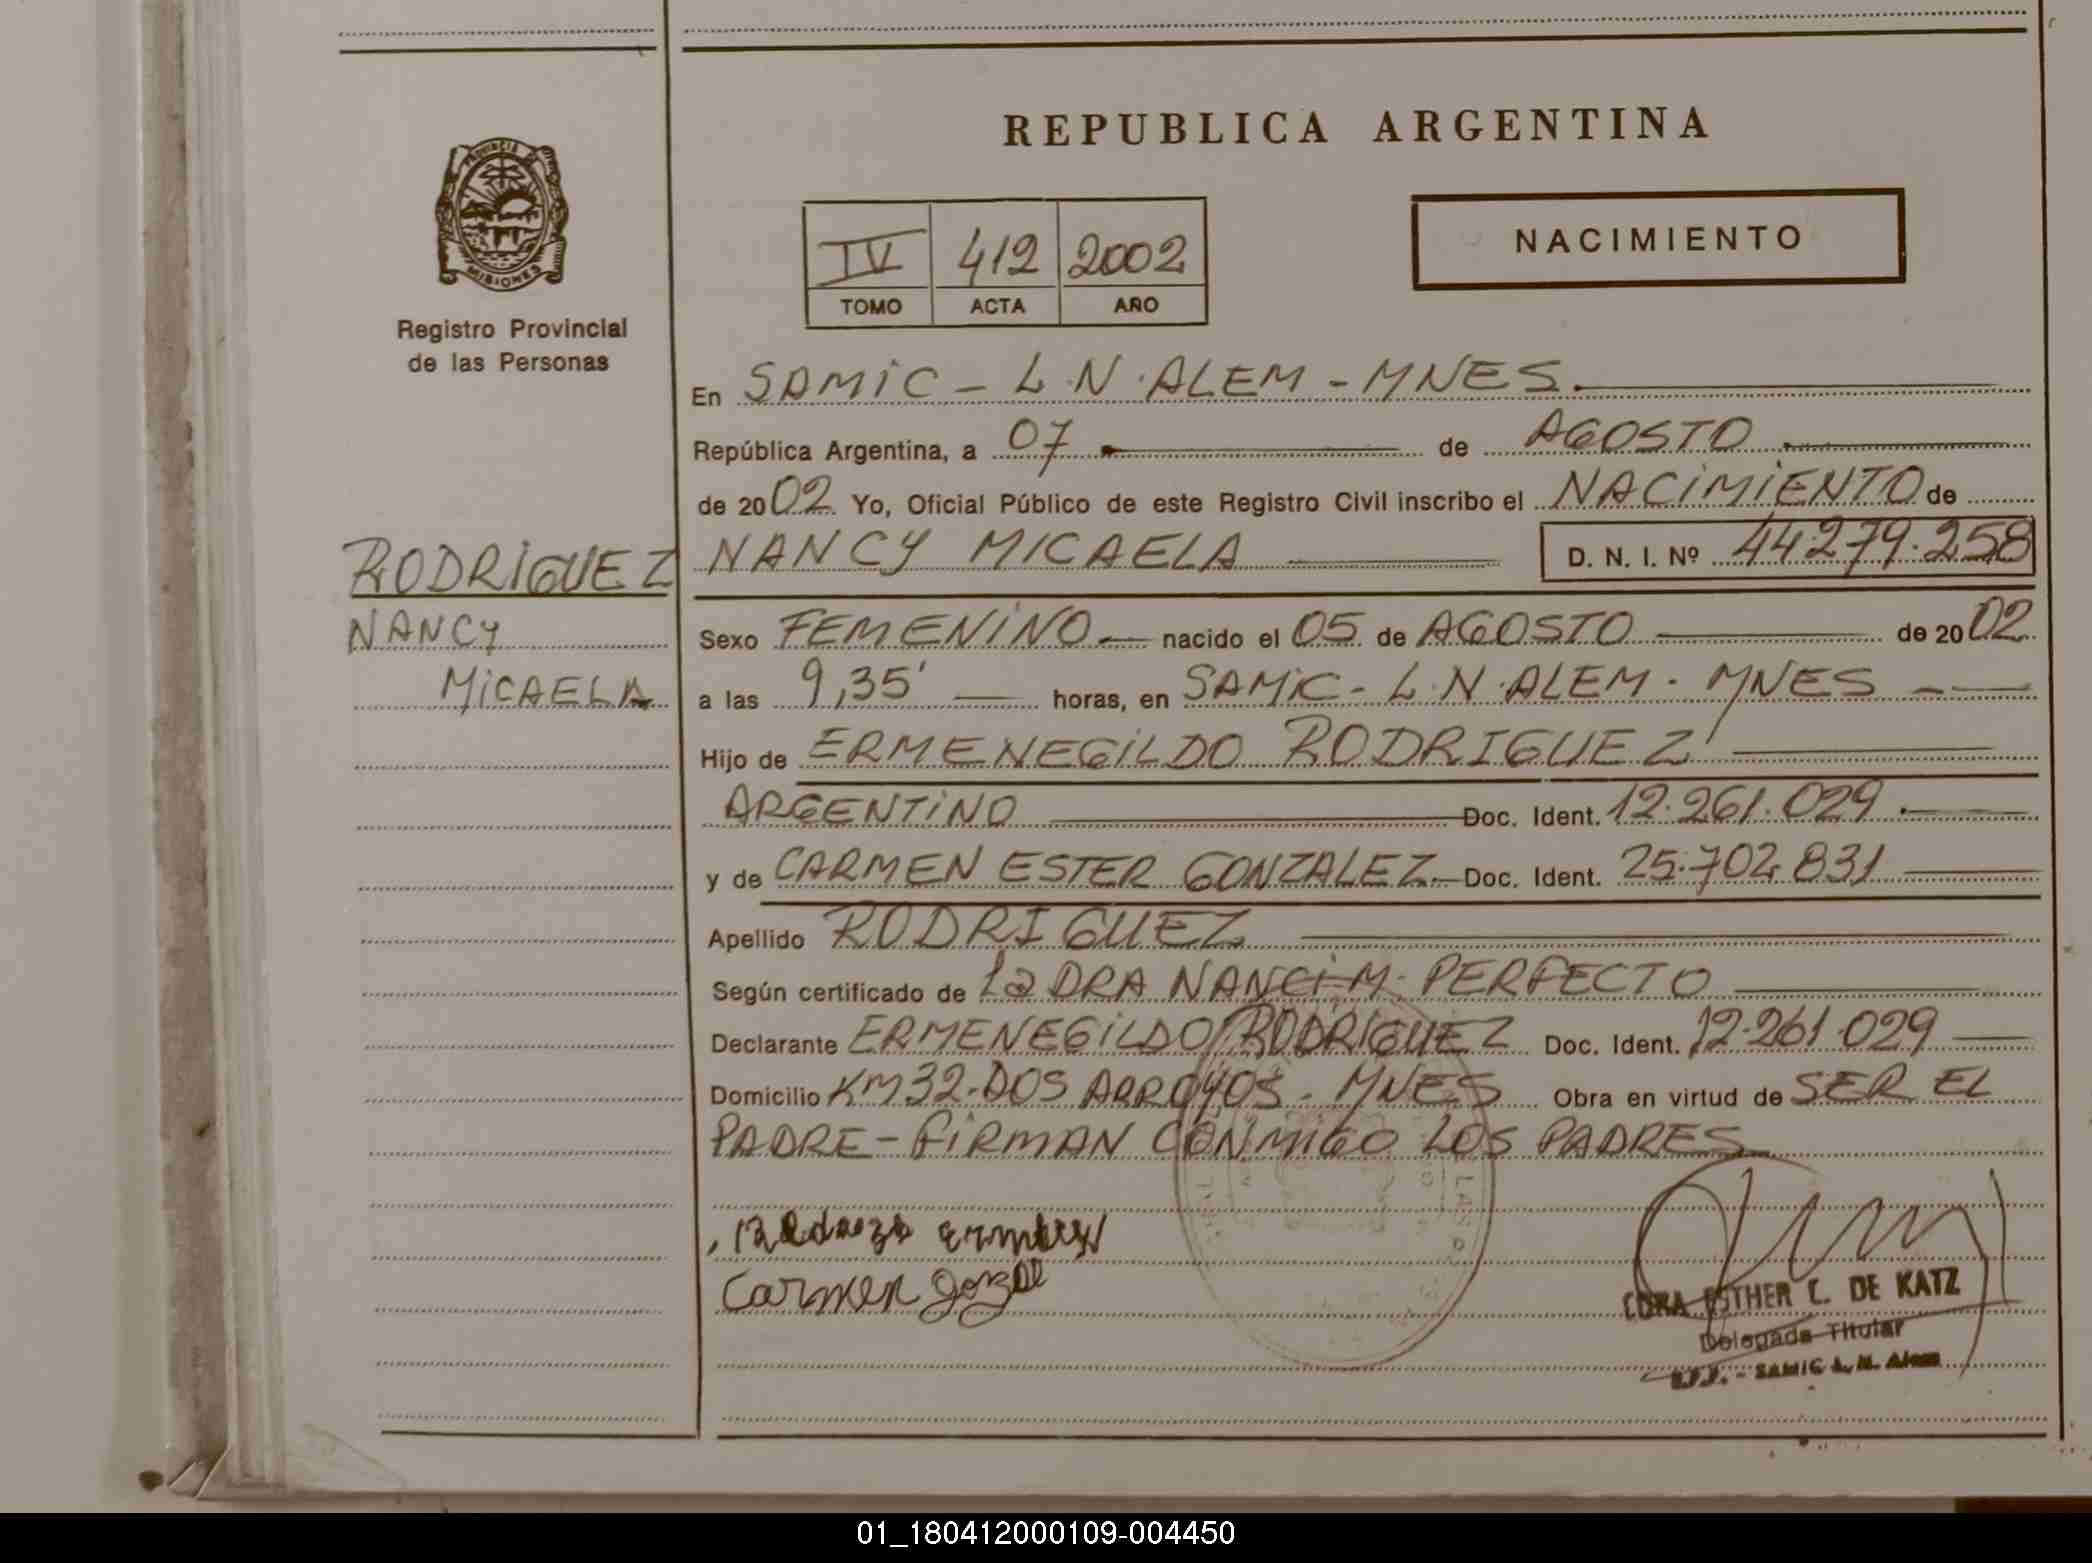 REPUBLICA ARGENTINA
PROVINCIA DE
MISIONES
Registro Provincial
de las Personas
IV 412 2002
TOMO ACTA AÑO
NACIMIENTO
En SAMIC - L.N. ALEM - MNES.
República Argentina, a 07 de AGOSTO
de 2002 Yo, Oficial Público de este Registro Civil inscribo el NACIMIENTO de
NANCY MICAELA D. N. I. Nº 44.279.258
RODRIGUEZ
NANCY
MICAELA
Sexo FEMENINO nacido el 05 de AGOSTO de 2002
a las 9,35' horas, en SAMIC - L.N. ALEM - MNES
Hijo de ERMENEGILDO RODRIGUEZ
ARGENTINO Doc. Ident. 12.261.029
y de CARMEN ESTER GONZALEZ Doc. Ident. 25.702.831
Apellido RODRIGUEZ
Según certificado de la DRA NANCI M. PERFECTO
Declarante ERMENEGILDO RODRIGUEZ Doc. Ident. 12.261.029
Domicilio KM 32 - DOS ARROYOS - MNES Obra en virtud de SER EL
PADRE - FIRMAN CONMIGO LOS PADRES
Carmen
CDRA ESTHER C. DE KATZ
Delegada Titular
SAMIC L. N. Alem
01_180412000109-004450